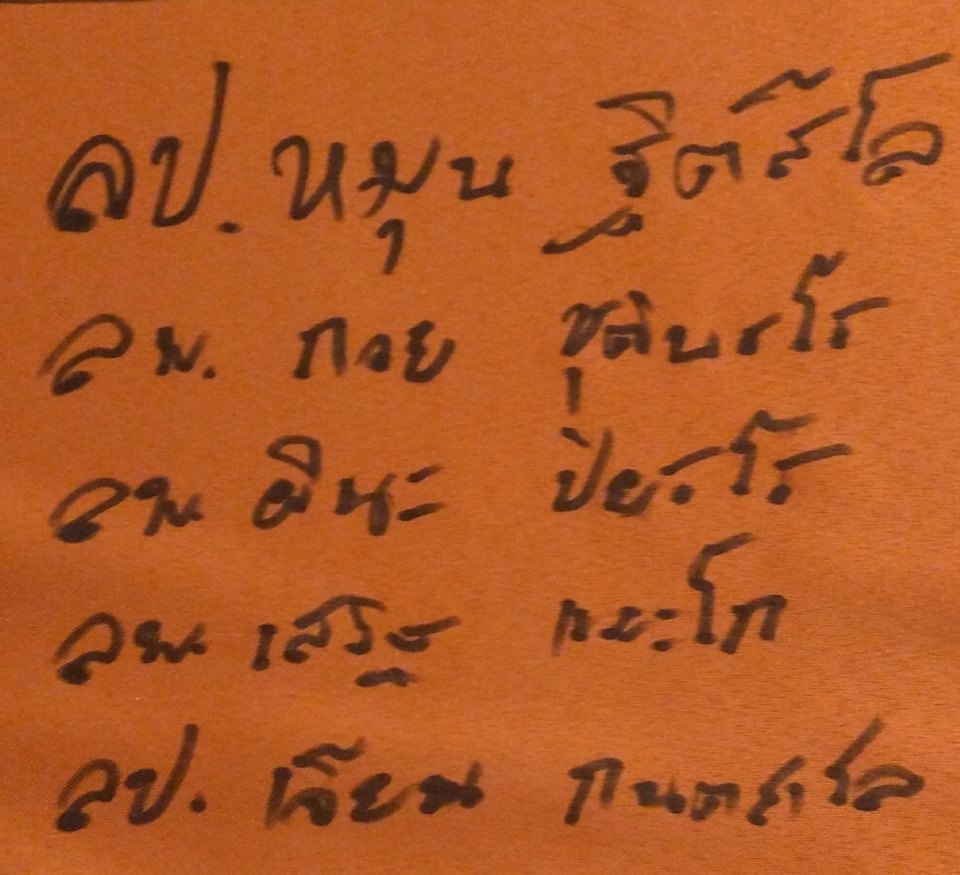 ลป. หมุน ฐิตสีโล
ลพ. กวย ชุตินธโร
ลพ มีนะ ปิยธโร
ลพ เสริฐ
ลป. เจียม กนตสโล